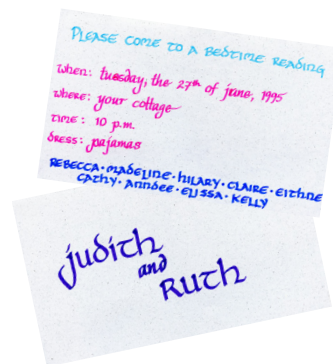 PLEASE COME TO A BEDTIME READING
when: tuesday, the 27th of june, 1995
where: your cottage
time: 10 p.m.
dress: pajamas
REBECCA • MADELINE • HILARY • CLAIRE • EITHNE
CATHY • ANNDEE • ELISSA • KELLY
judith
and
RUTH